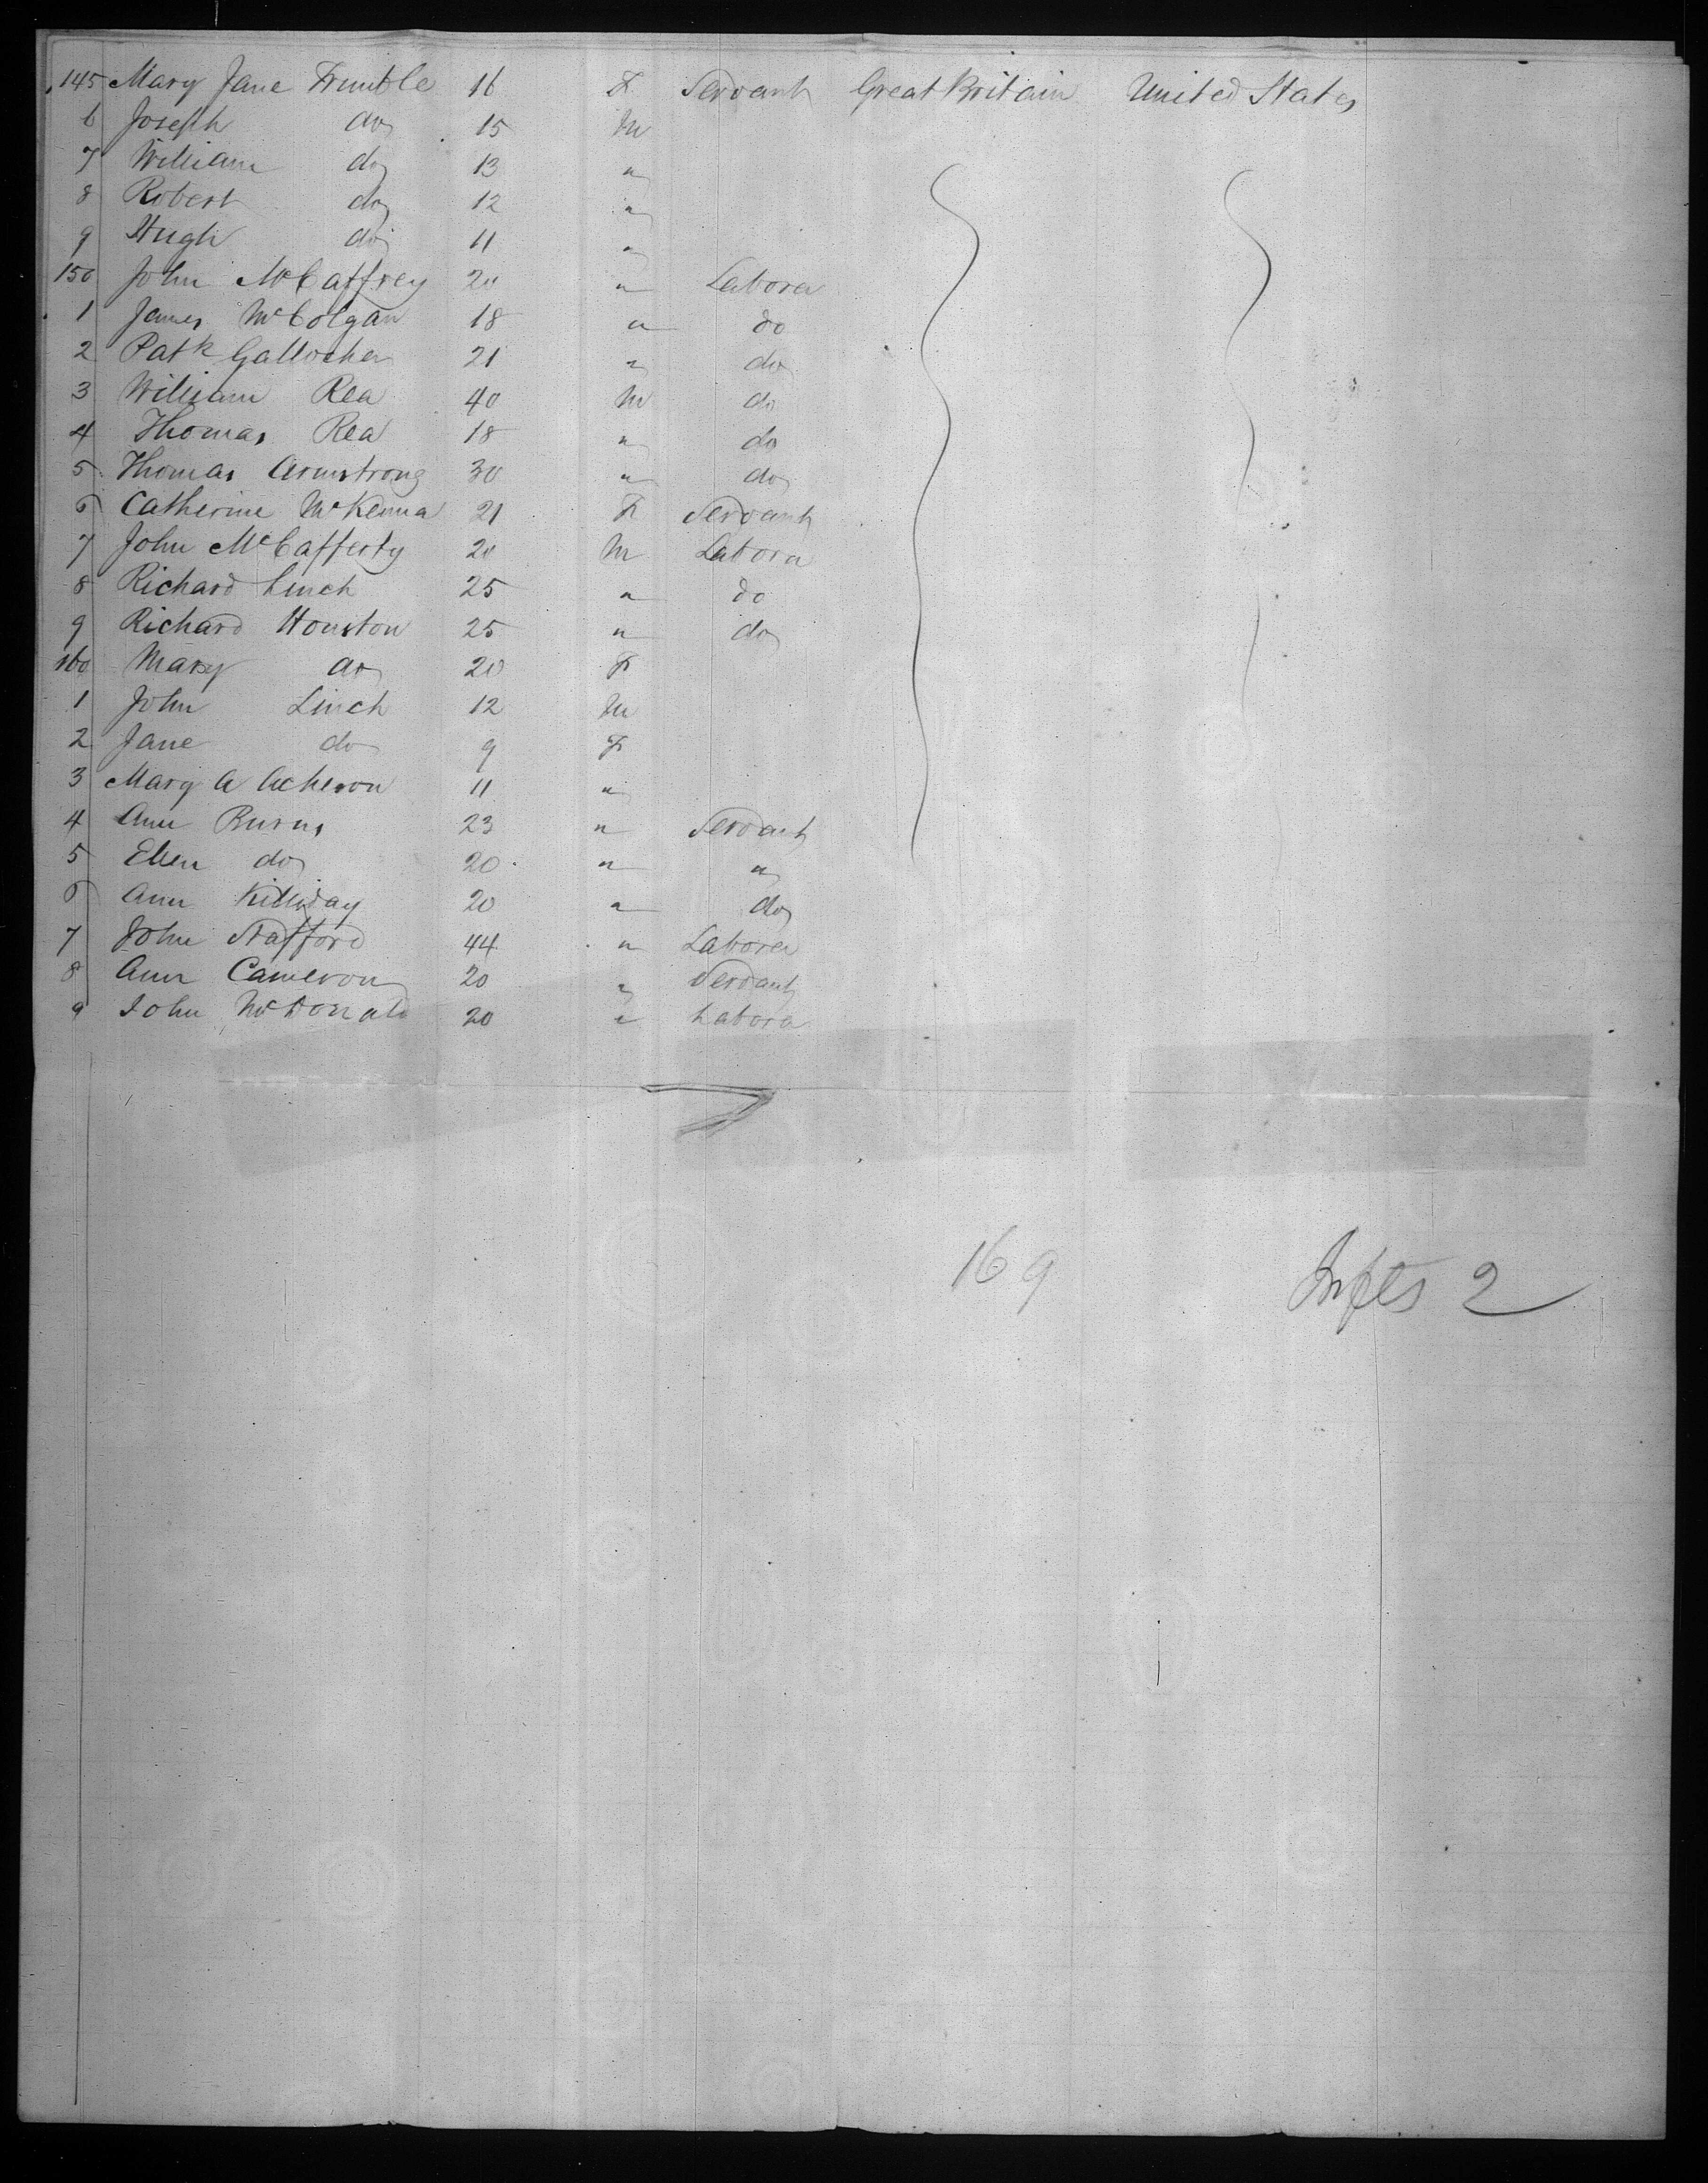 145 Mary Jane Trimble 16 F Servant Great Britain United States
6 Joseph do 15 M
7 William do 13 "
8 Robert do 12 "
9 Hugh do 11 "
150 John McCaffrey 20 " Laborer
1 James McColgan 18 " do
2 Patk Gallocher 21 " do
3 William Rea 40 M do
4 Thomas Rea 18 " do
5 Thomas Armstrong 30 " do
6 Catherine McKenna 21 F Servant
7 John McCafferty 20 M Laborer
8 Richard Linch 25 " do
9 Richard Houston 25 " do
160 Mary do 20 F
1 John Linch 12 M
2 Jane do 9 F
3 Mary A Acheson 11 "
4 Ann Burns 23 " Servant
5 Ellen do 20 " "
6 Ann Killiday 20 " do
7 John Stafford 44 " Laborer
8 Ann Cameron 20 " Servant
9 John McDonald 20 " Laborer
169 Infts 2